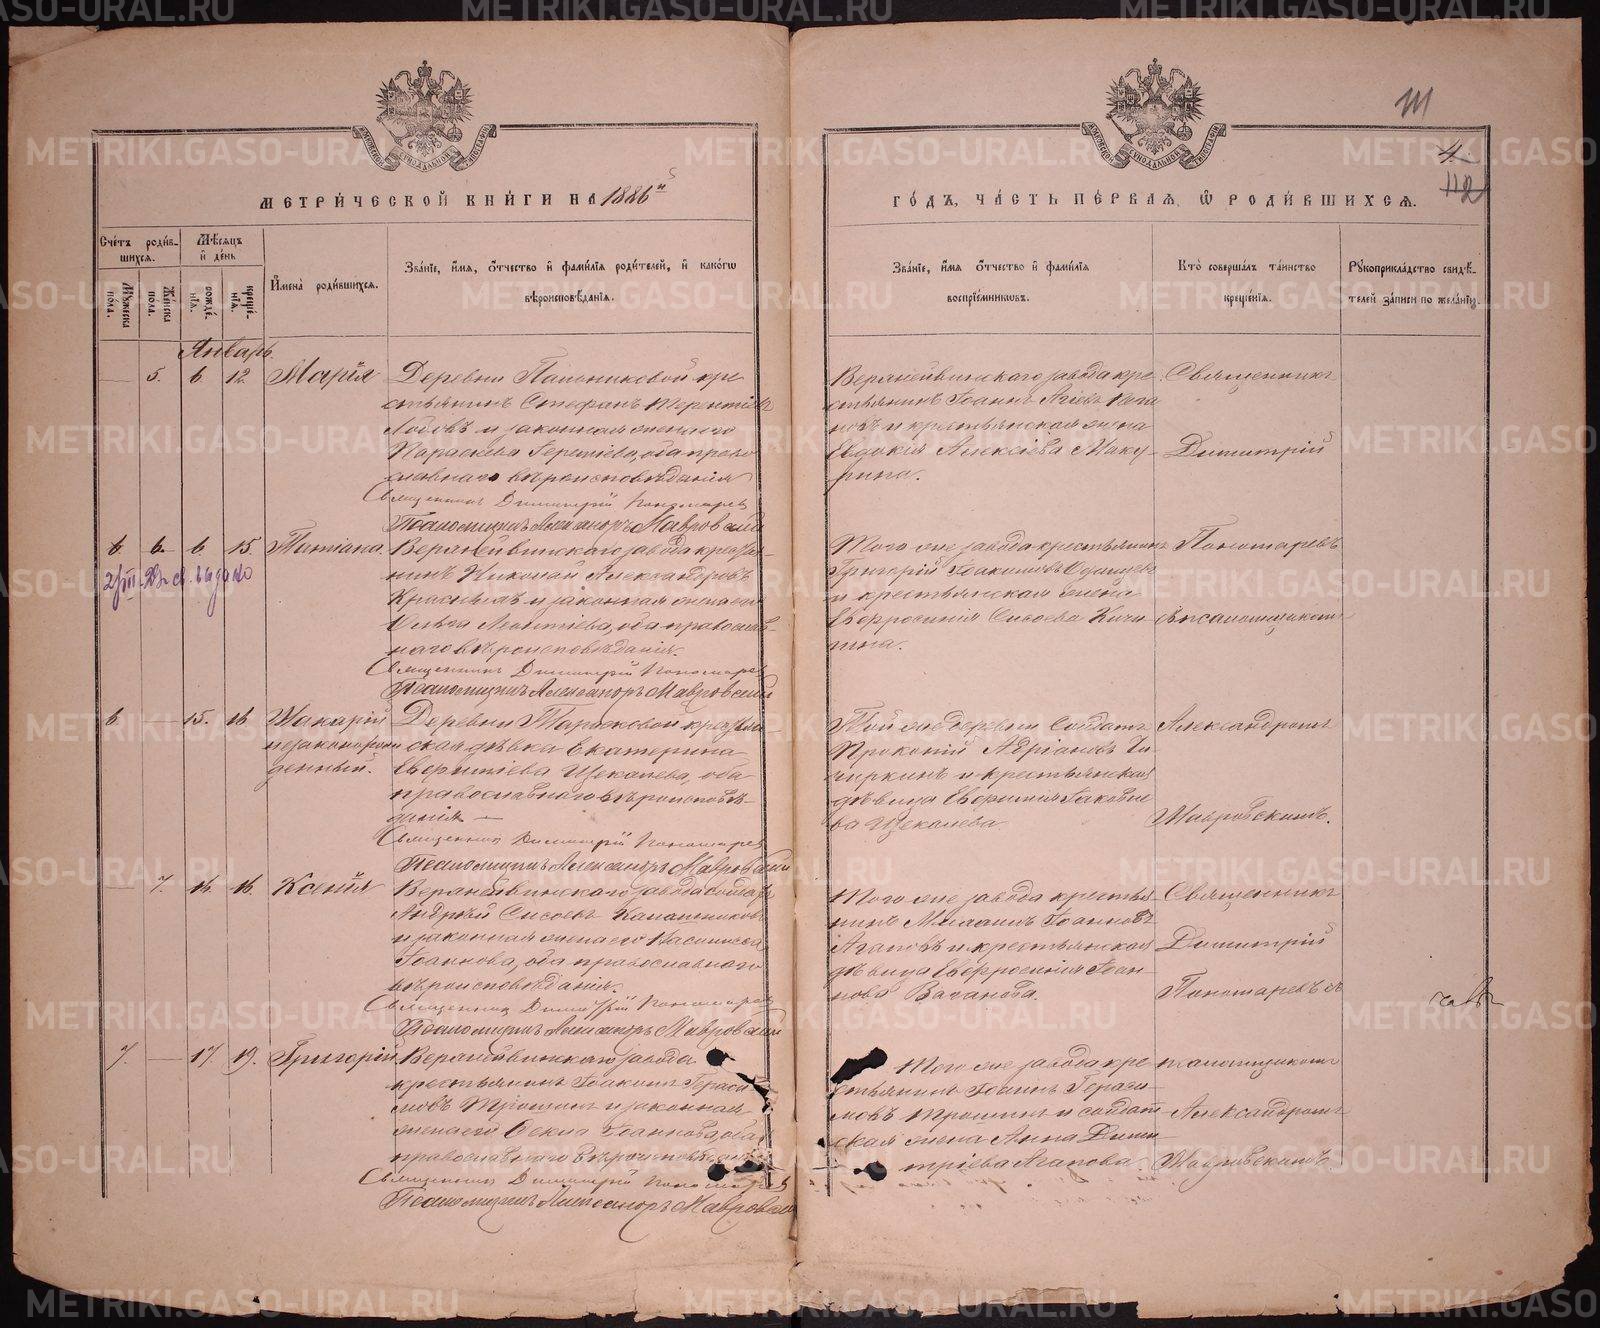 METRIKI.GASO-URAL.RU
111
4.
112
МЕТРИ́ЧЕСКОЙ КНИ́ГИ НА 1886й
ГО́ДЪ, ЧА́СТЬ ПЕ́РВАѦ, Ѿ РОДИ́ВШИХСѦ.
Сче́тъ роди́вшихсѧ.
Мꙋ́жеска по́ла.
Же́нска по́ла.
Мѣ́сѧцъ и҆ де́нь
рожде́нїѧ.
креще́нїѧ.
И҆мена̀ роди́вшихсѧ.
Зва́нїе, и҆́мѧ, ѻ҆́тчество и҆ фами́лїѧ роди́телей, и҆ како́гѡ
вѣроисповѣ́данїѧ.
Зва́нїе, и҆́мѧ ѻ҆́тчество и҆ фами́лїѧ
воспрїе́мникѡвъ.
Кто̀ соверша́лъ та́инство
креще́нїѧ.
Рꙋкоприкла́дство свидѣ́-
телей за́писи по жела́нїю.
Январь.
5. 6 12. Марія
Деревни Пальниковой кре
стьянинъ Стефанъ Терентіевъ
Лобовъ и законная жена его
Параскева Терентіева, оба право
славнаго вѣроисповѣданія
Священникъ Димитрій Пономаревъ
Псаломщикъ Александръ Мавровскій
Верхнейвинскаго завода кре
стьянинъ Іоаннъ Агіевъ
новъ и крестьянская жена
Евдокія Алексіева Маку-
рина.
Священникъ
Димитрій
6. 6. 6 15. Татіана
Верхнейвинскаго завода крестья-
нинъ Николай Александровъ
Красныхъ и законная жена его
Ольга Леонтіева, оба православ-
наго вѣроисповѣданія.
Священникъ Димитрій Пономаревъ
Псаломщикъ Александръ Мавровскій
Того же завода крестьянинъ
Григорій Іоакимовъ
и крестьянская жена
Евфросинія Сисоева Кичи-
гина.
Пономаревъ
съ псаломщикомъ
6. 15. 16 Захарій
незаконорож
денный.
Деревни Тарасковой крестьян-
ская дѣвка Екатерина
Евфиміева Щекалева, оба
православнаго вѣроисповѣ-
данія
Священникъ Димитрій Пономаревъ
Псаломщикъ Александръ Мавровскій
Той же деревни Солдатъ
Прокопій Адріановъ Чи-
чиркинъ и крестьянская
дѣвица Евфимія Іаковле
ва Щекалева.
Александромъ
Мавровскимъ.
7. 16. 16. Ксенія
Верхнейвинскаго завода солдатъ
Андрей Сисоевъ Калашниковъ
и законная жена его Василисса
Іоаннова, оба православнаго
вѣроисповѣданія.
Священникъ Димитрій Пономаревъ
Псаломщикъ Александръ Мавровскій
Того же завода крестья-
нинъ Михаилъ Іоанновъ
Агаповъ и крестьянская
дѣвица Евфросинія Іоан-
нова Ваганова.
Священникъ
Димитрій
Пономаревъ съ
7. 17. 19. Григорій
Верхнейвинскаго завода
крестьянинъ Іоакимъ Гераси-
мовъ Трошинъ и законная
жена его Ѳекла Іоаннова, оба
православнаго вѣроисповѣданія
Священникъ Димитрій Пономаревъ
Псаломщикъ Александръ Мавровскій
Того же завода кре
стьянинъ Іоаннъ Гераси-
мовъ Трошинъ и солдат-
ская жена Анна Дими-
тріева Агапова.
псаломщикомъ
Александромъ
Мавровскимъ.